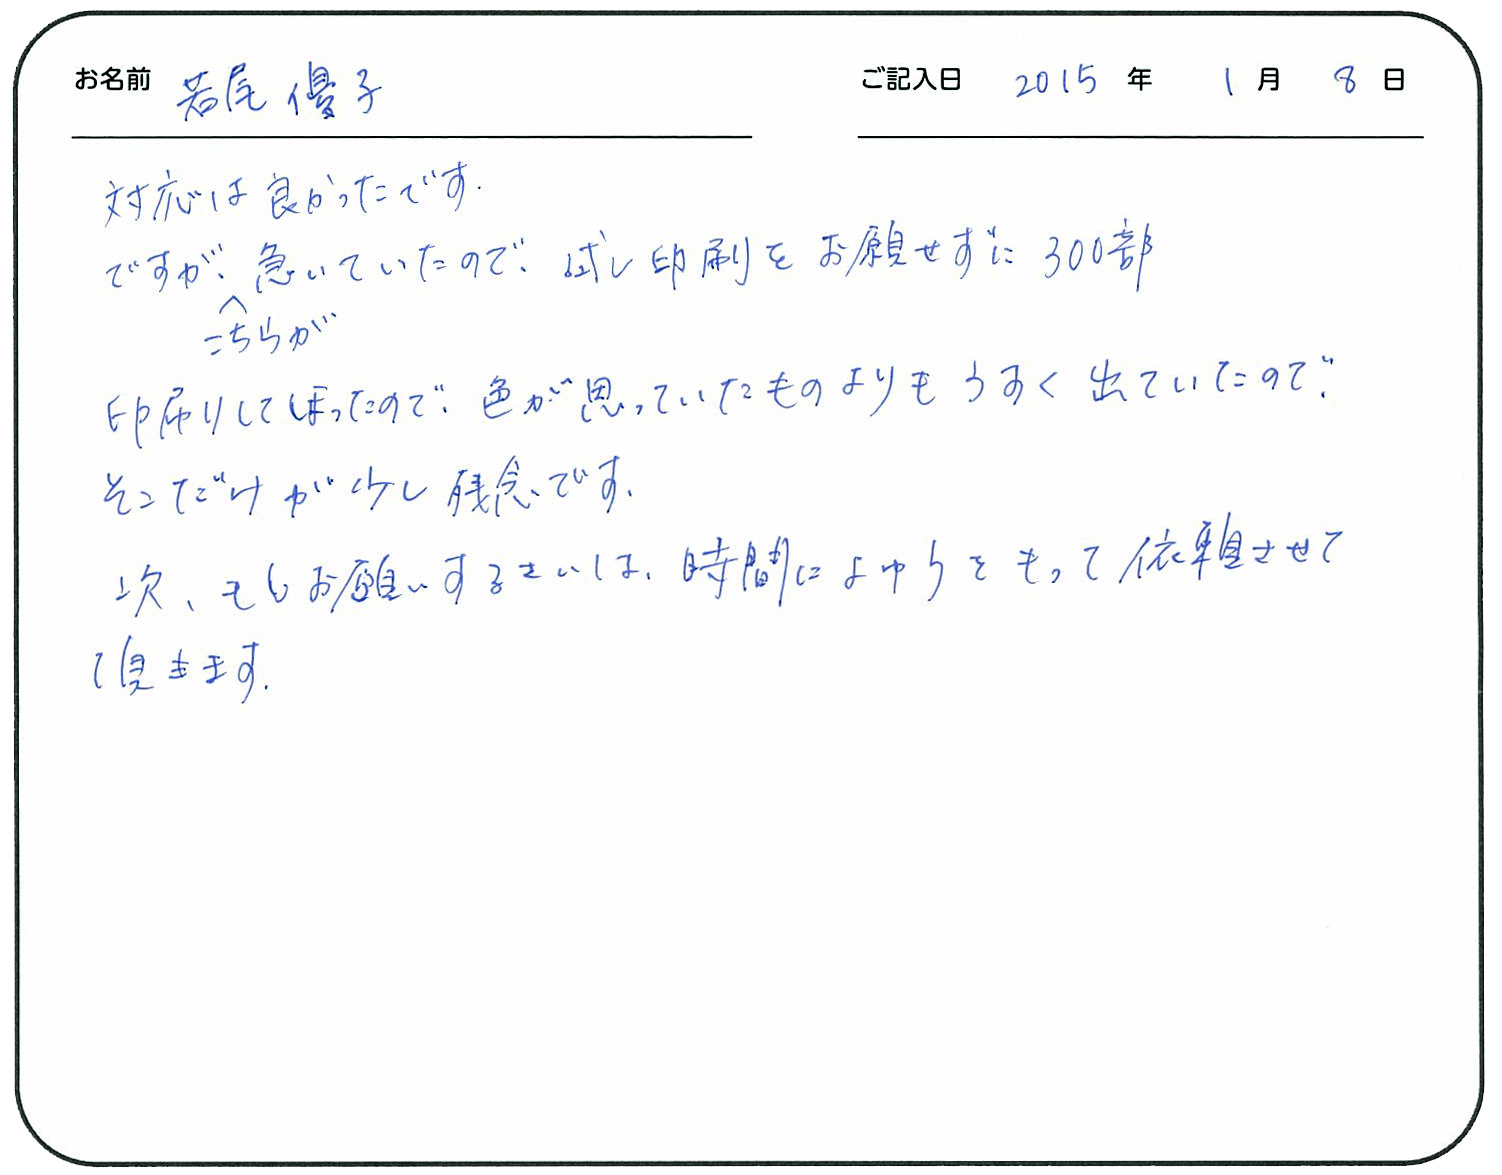 お名前 若尾 優子 ご記入日 2015 年 1 月 8 日
対応は良かったです.
ですが、急いていたので、試し印刷をお願せずに300部
こちらが
印刷りしてしまったので、色が思っていたものよりもうすく出ていたので、
そこだけが少し残念です.
次、もしお願いするさいは、時間によゆうをもって依頼させて
て頂きます.